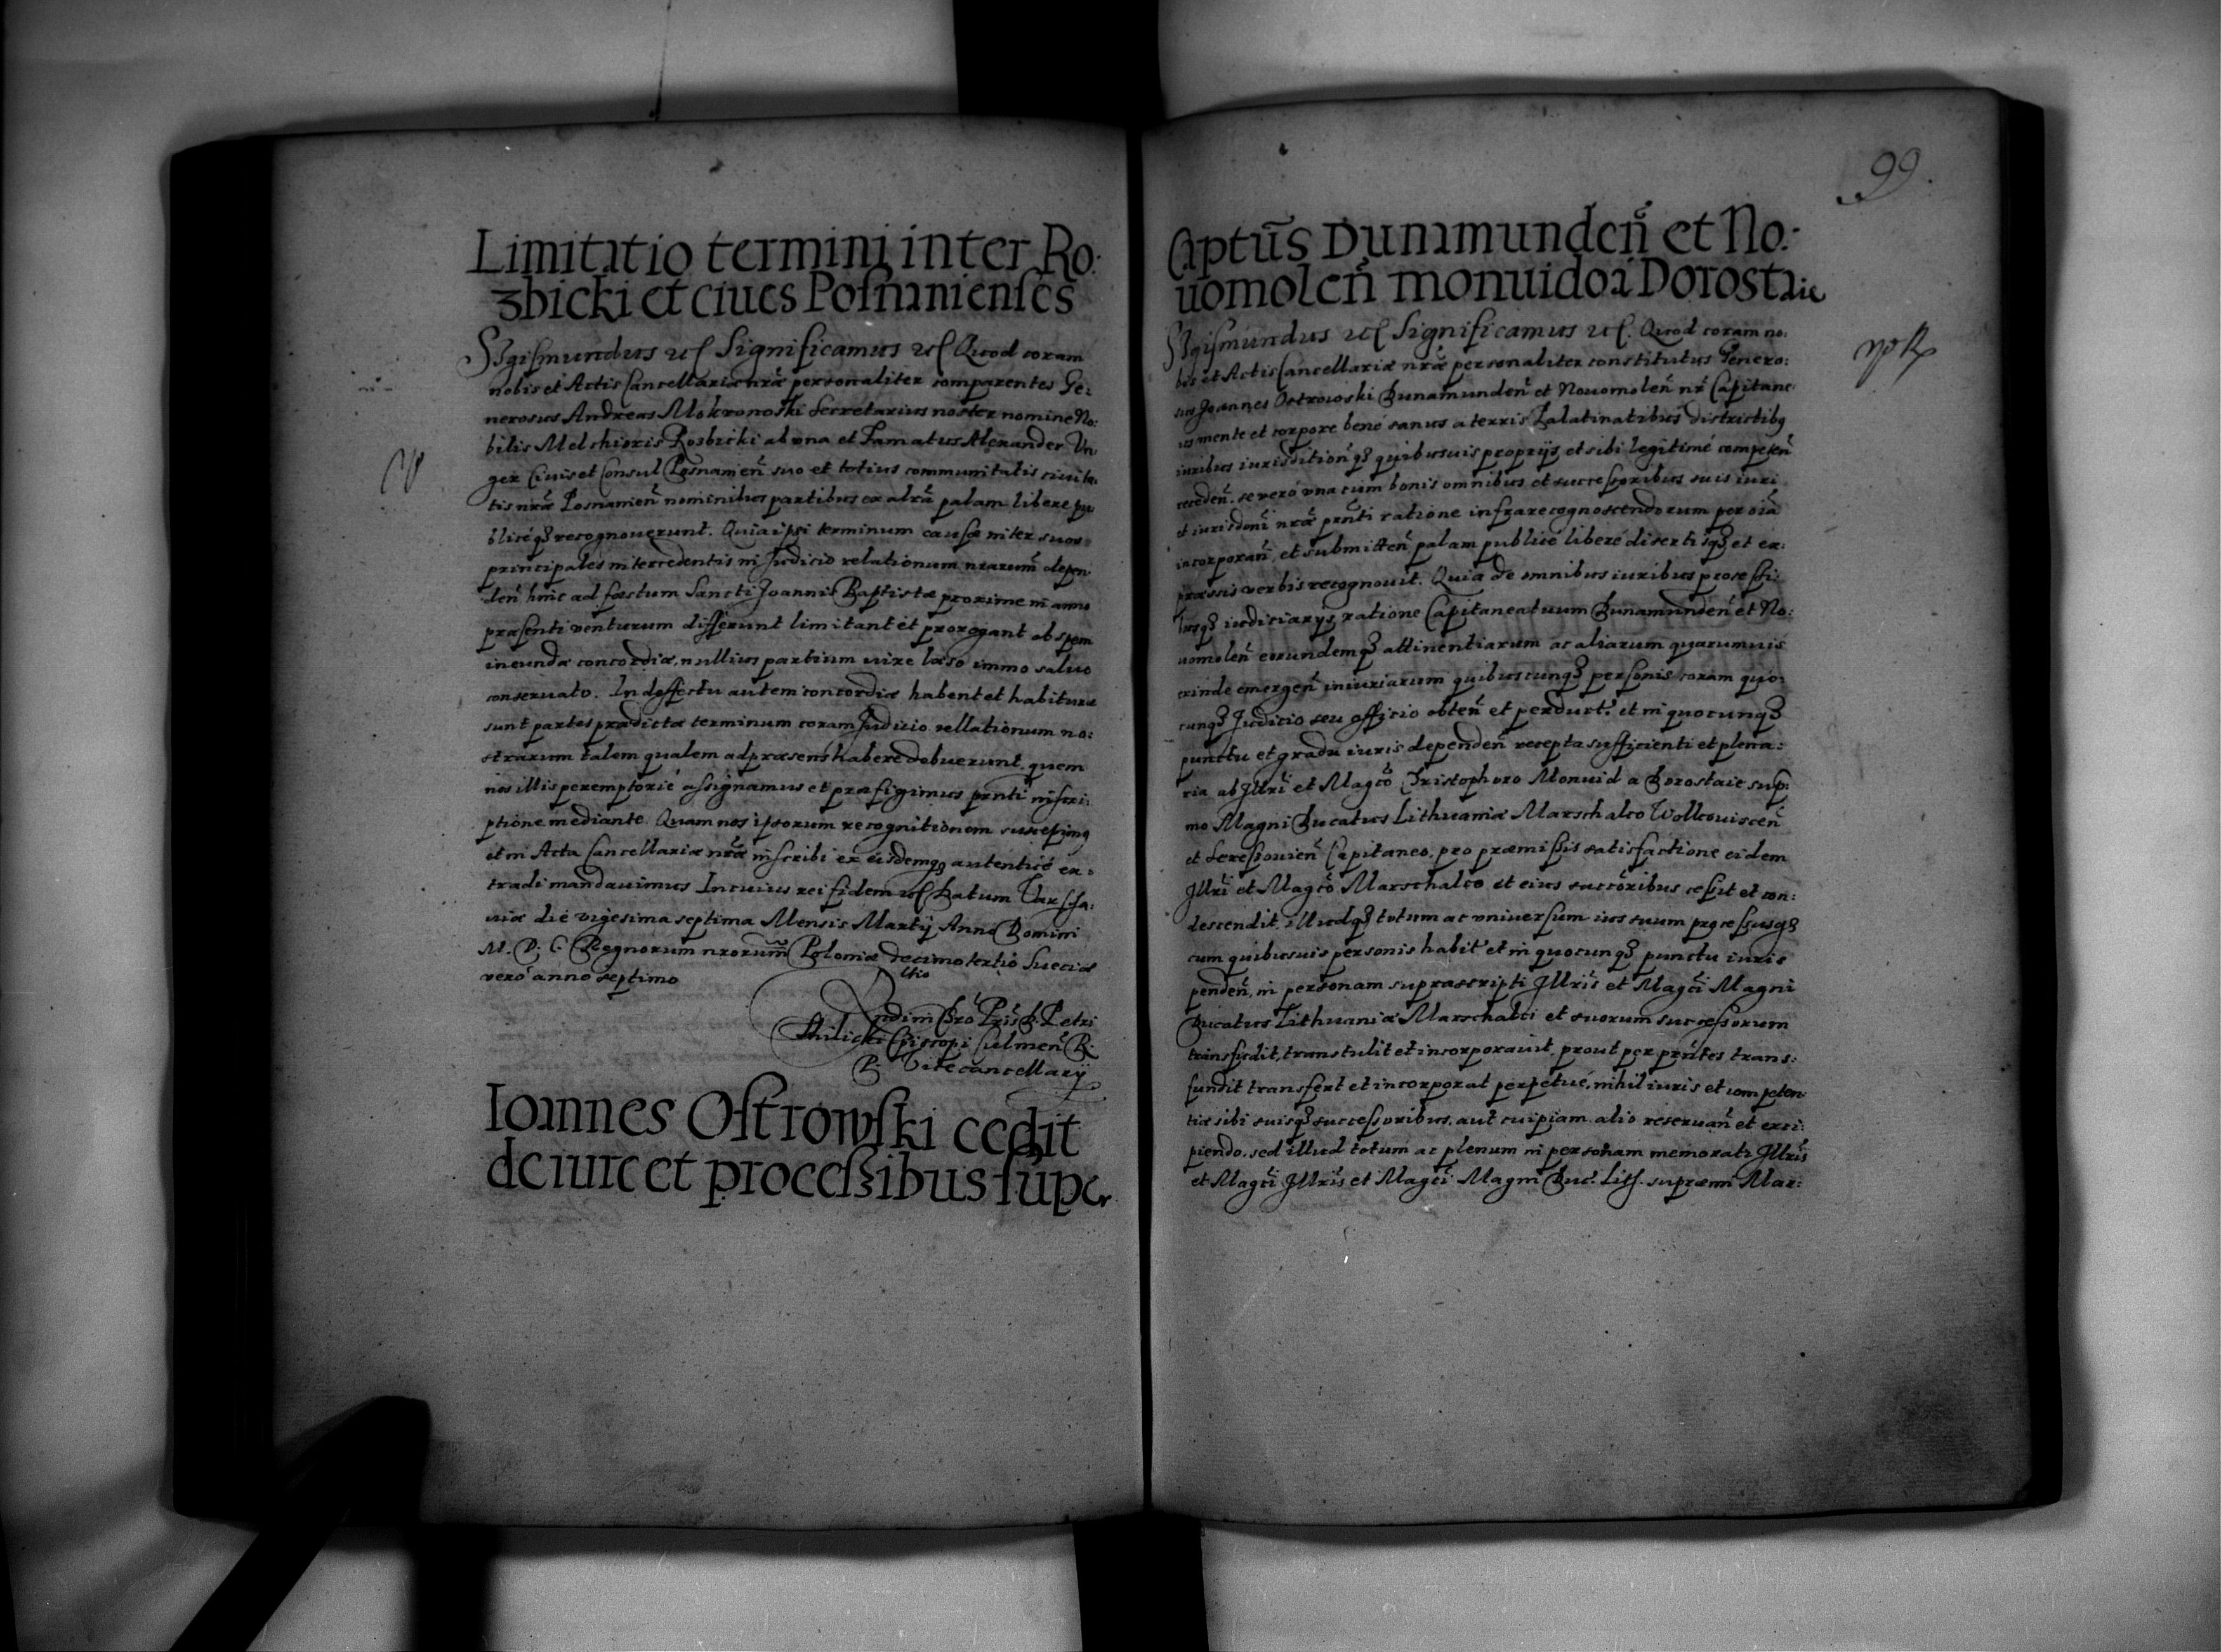 Limitatio termini inter Ro:
zbicki et ciues Posnanienses
Sigismundus etc Significamus etc Quod coram
nobis et Actis Cancellariæ nr̃æ personaliter comparentes Ge:
nerosus Andreas Mokronoski Secretarius noster nomine No:
bilis Melchioris Rozbicki ab vna et Famatus Alexander Un
ger Ciuis et Consul Posnanień suo et totius communitatis ciuita
tis nr̃æ Posnanień nominibus partibus ex altr̃a palam libere pu
blicéq3 recognouerunt. Quia ipsi terminum causæ inter suos
principales intercedentis in Judicio relationum nrarum̃ depen
deñ hinc ad foestum Sancti Joannis Baptistæ proxime in anno
præsenti venturum differunt limitant et prorogant ob spem
ineundæ concordiæ, nullius partium iure læso immo saluo
conseruato. In deffectu autem concordiæ habent et habituræ
sunt partes prædictæ terminum coram Judicio rellationum no:
strarum talem qualem ad præsens habere debuerunt, quem
nos illis peremptorié assignamus et præfigimus pr̃nti inscri:
ptione mediante. Quam nos ipsorum recognitionem suscepimus
et in Acta Cancellariæ nr̃æ inscribi ex eisdemq3 autenticé ex:
tradi mandauimus In cuius rei fidem etc Datum Varscha:
uiæ die vigesima septima Mensis Martij Anno Domini
M. D. C. Regnorum nrorum̃ Poloniæ decimo tertio Sueciæ
vero anno septimo
Petri
Tilicki Episcopi Culmeñ R.
P. Vicecancellarij
Ioannes Ostrowski cedit
de iure et processibus super
99.
Captũs Dunamundeñ et No:
uomoleñ monuido a Dorostaie
Sigismundus etc Significamus etc. Quod coram no:
bis et Actis Cancellariæ nr̃æ personaliter constitutus Genero:
sus Joannes Ostrowski Dunamundeñ et Nouomoleñ nr̃ Capitane
us mente et corpore bené sanus a terris Palatinatibus districtibus
iuribus iurisdictioñq3 quibusuis proprijs et sibi legitimé competeñ
recedeñ, se veró vna cum bonis omnibus et successoribus suis iuri
et iurisdoni nr̃æ pr̃nti ratione infrarecognoscendorum per oĩa
incorporañ, et submitteñ palam publicé liberé disertisq3 et ex:
præssis verbis recognouit. Quia de omnibus iuribus processi:
busq3 iudiciarijs, ratione Capitaneatuum Dunamundeñ et No:
uomoleñ eorundemq3 attinentiarum ac aliarum quarumuis
exinde emergeñ iniuriarum quibuscunq3 personis coram quo:
cunq3 Judicio seu officio obteñ et perduct. et in quocunq3
punctu et gradu iuris dependeñ recepta sufficienti et plena:
ria ab Jllri et Magco Christophoro Monuid a Dorostaie supr̃:
mo Magni Ducatus Lithuaniæ Marschalco Wolkouisceñ
et Seressouieñ Capitaneo, pro præmissis satisfactione eidem
Jllri et Magco Marschalco et eius succoribus cessit et con:
descendit, illudq3 totum ac vniuersum ius suum processusq3
cum quibusuis personis habit et in quocunq3 punctu iuris
pendeñ, in personam suprascripti Jllris et Magci Magni
Ducatus Lithuaniæ Marschalci et suorum successorum
transfudit, transtulit et incorporauit, prout per pr̃ntes trans:
fundit transfert et incorporat perpetué, nihil iuris et competen
tiæ sibi suisq3 successoribus, aut cuipiam alio reseruañ et exci:
piendo, sed illud totum ac plenum in personam memorati Jllris
et Magci Jllris et Magci Magni Duc. Lith. supræmi Mar: